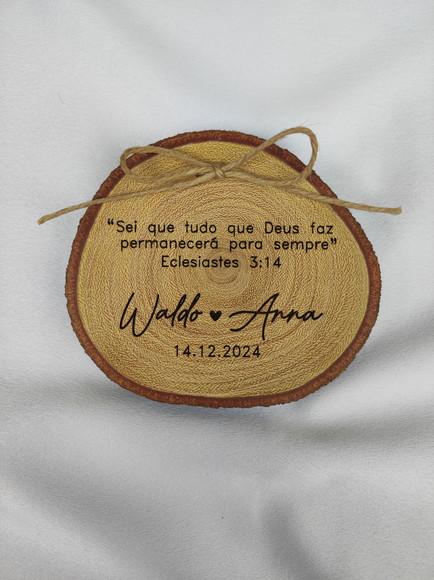 “Sei que tudo que Deus faz
permanecerá para sempre”
Eclesiastes 3:14
Waldo ♥ Anna
14.12.2024